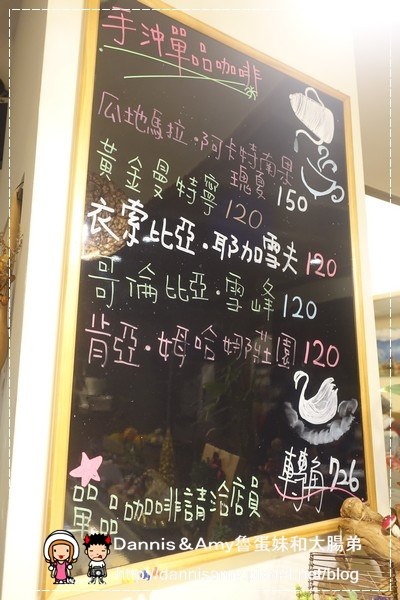 手沖單品咖啡
瓜地馬拉.阿卡特南果
瑰夏 150
黃金曼特寧 120
衣索比亞.耶加雪夫 120
哥倫比亞.雪峰 120
肯亞.姆哈姆莊園 120
轉角726
單品咖啡請洽店員
Dannis＆Amy魯蛋妹和大腸弟